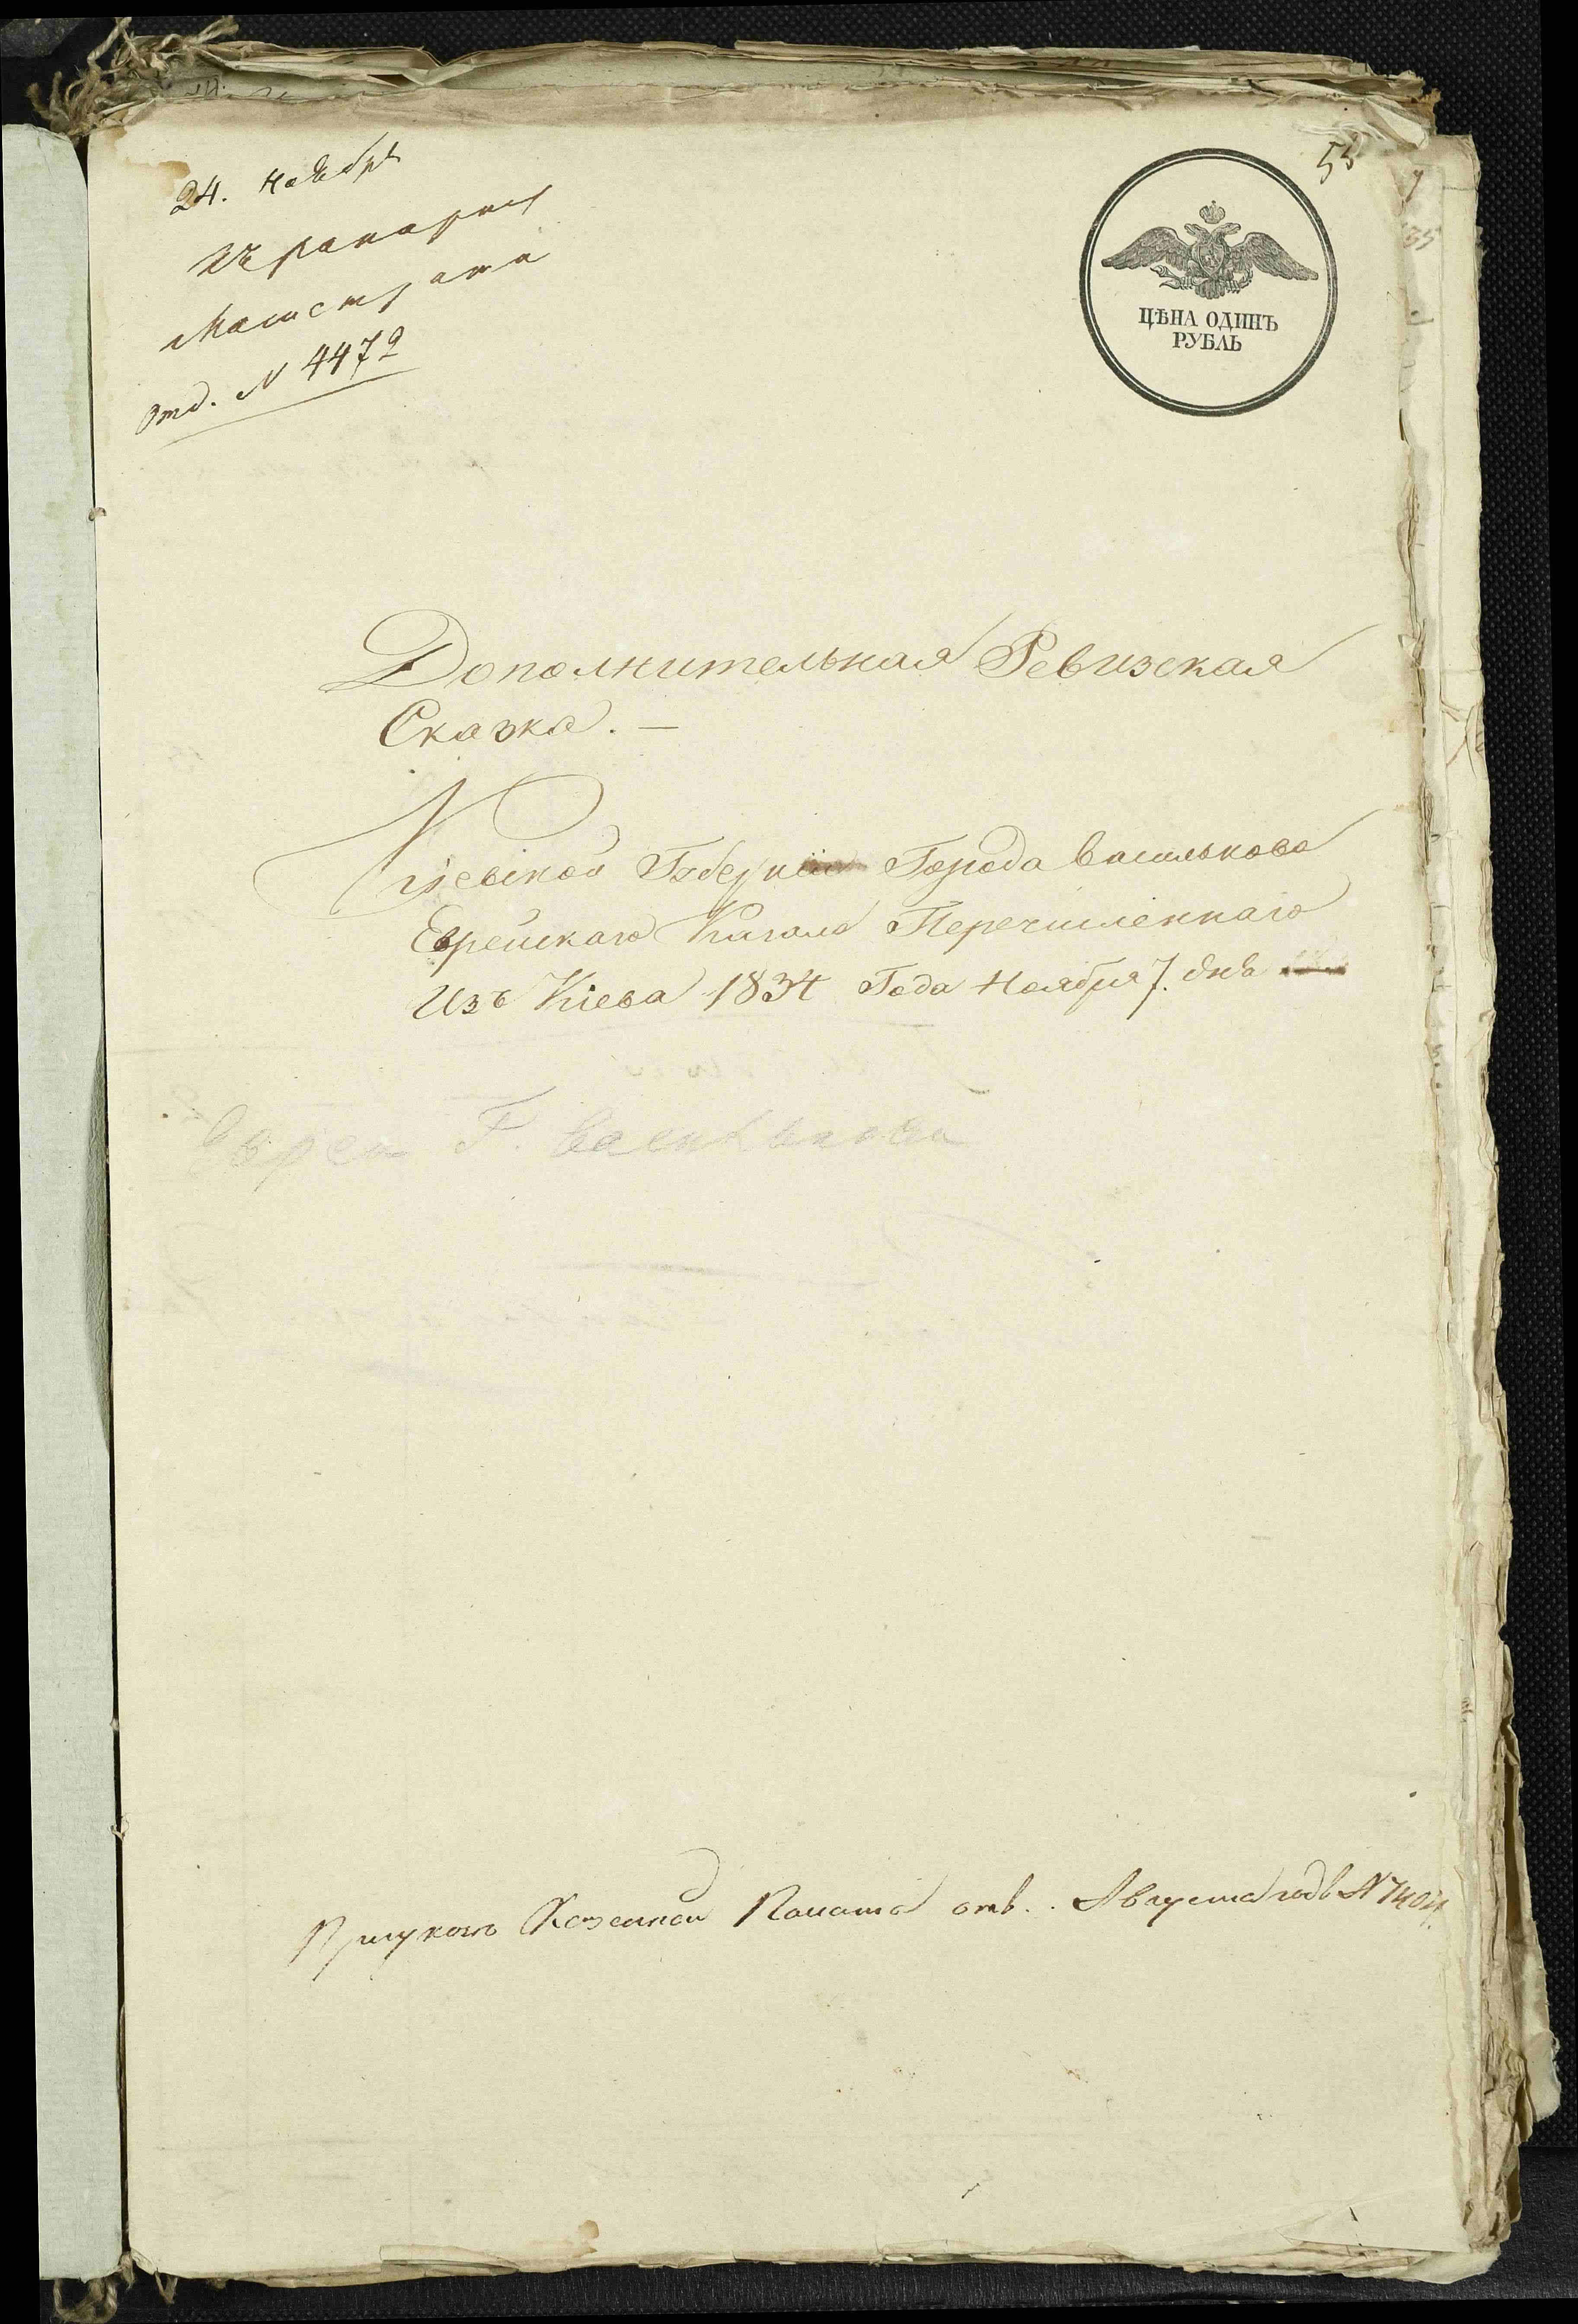 24. Ноября
къ рапорту
Магистрата
отд. N 4472
55
ЦѢНА ОДИНЪ
РУБЛЬ
Дополнительная Ревизская
Сказка. —
Кіевской Губерніи Города Василькова
Еврейскаго Кагала Перечисленнаго
Изъ Кіева 1834 Года Ноября 7. дня
Евреи Г. Василькова
Казенной Палаты отъ Августа N